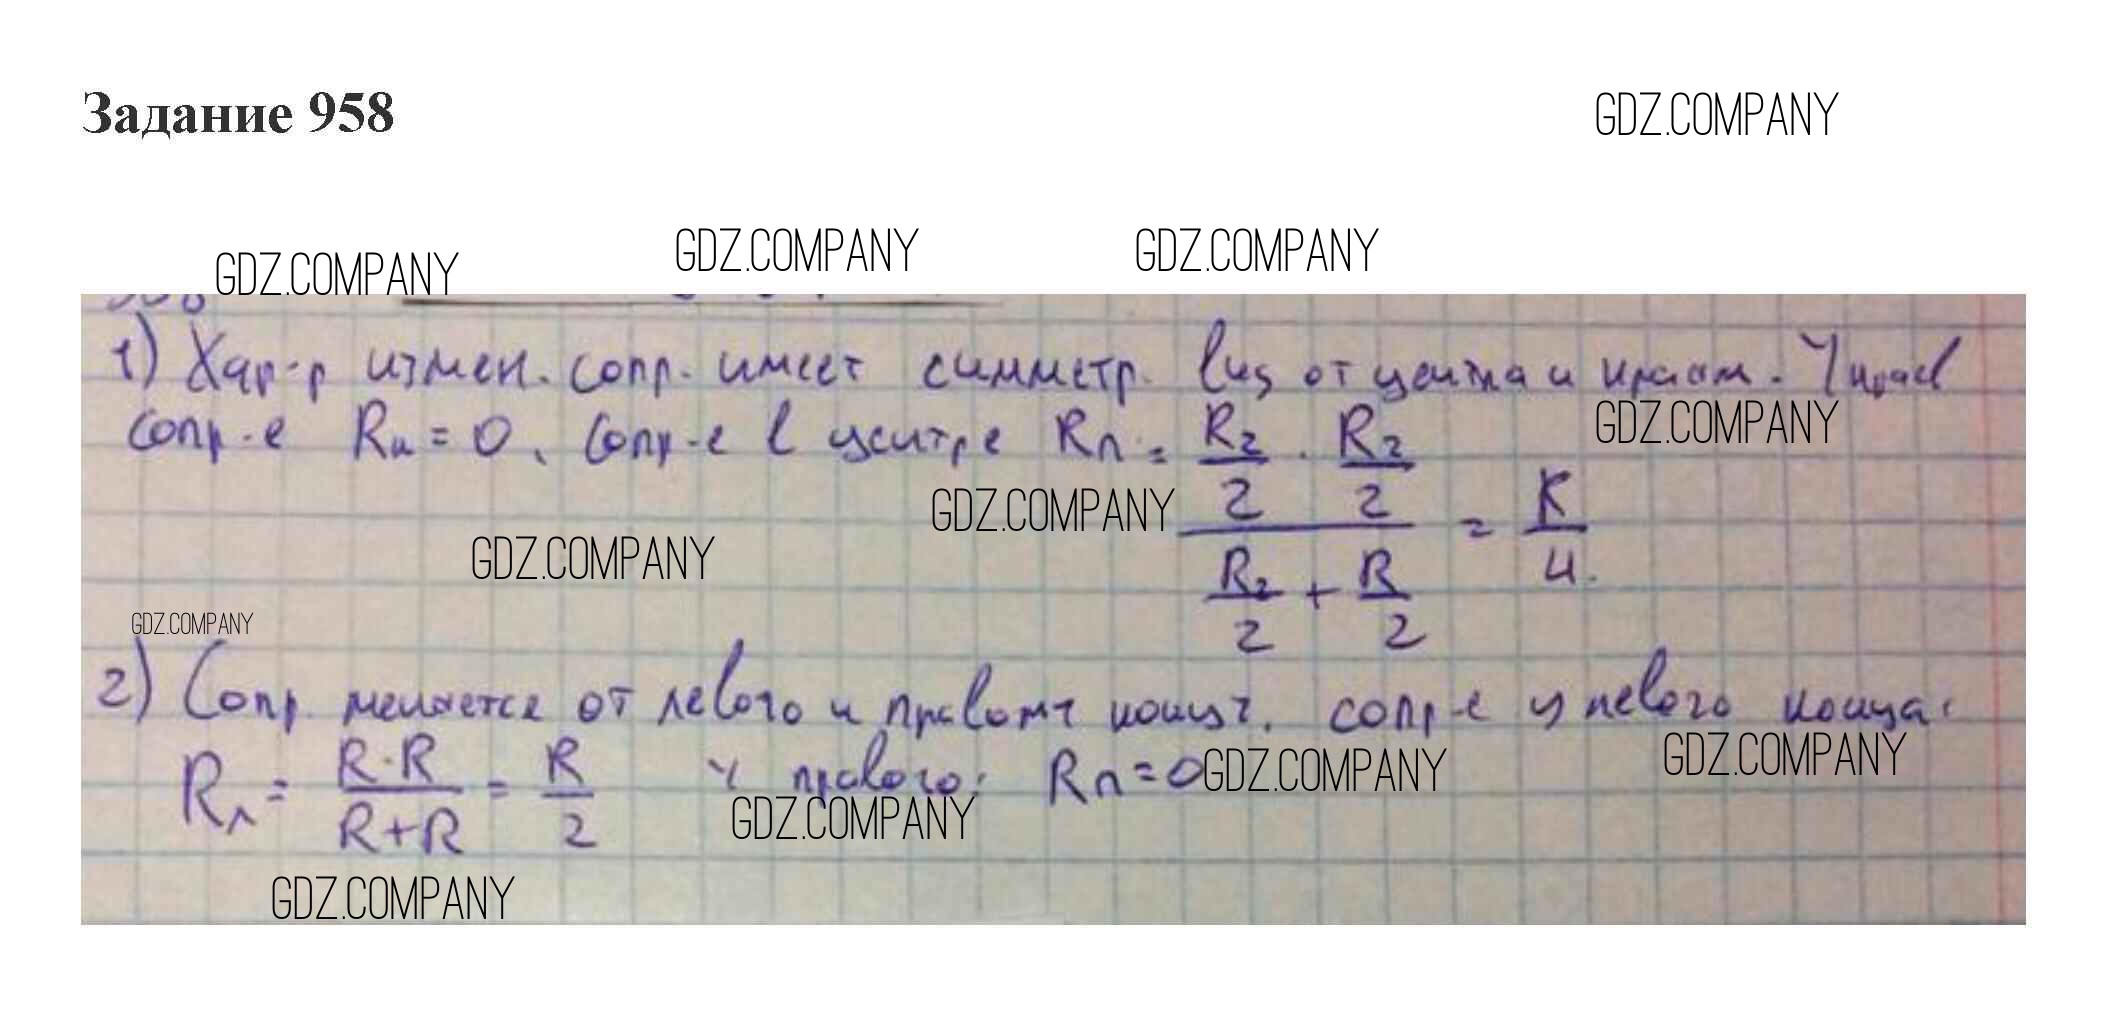 Задание 958
GDZ.COMPANY
GDZ.COMPANY GDZ.COMPANY GDZ.COMPANY
1) Хар-р измен. сопр. имеет симметр. вид от центра и краям. У краев
GDZ.COMPANY
сопр-е Rк = 0, сопр-е в центре Rп = (R2/2 · R2/2) / (R2/2 + R/2) = R/4.
GDZ.COMPANY
GDZ.COMPANY
GDZ.COMPANY
2) Сопр. меняется от левого к правому концу. сопр-е у левого конца:
Rл = R·R / R+R = R/2 У правого: Rп = 0
GDZ.COMPANY GDZ.COMPANY
GDZ.COMPANY
GDZ.COMPANY